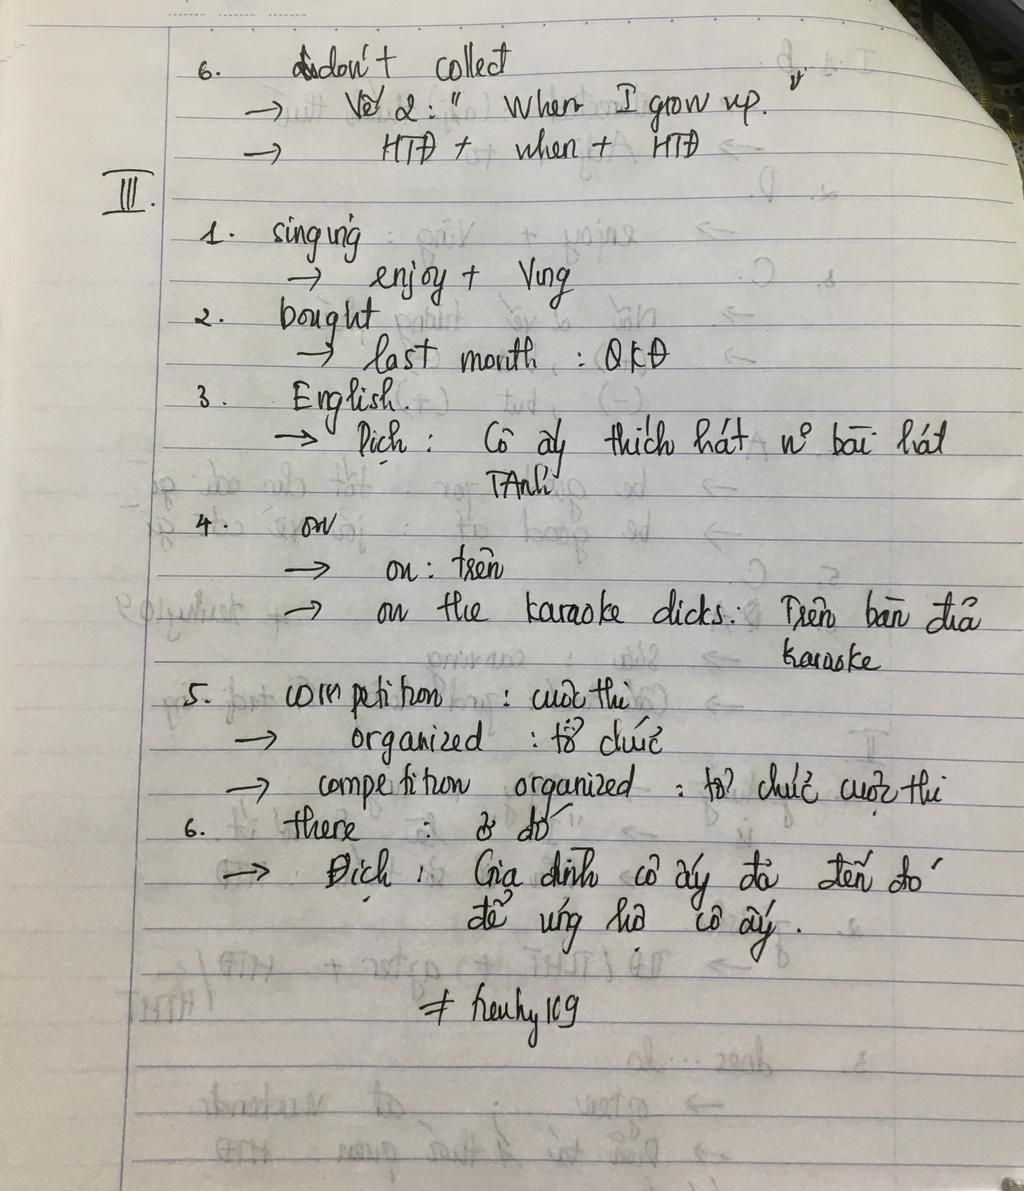 6. don't collect
→ Vế 2: " When I grow up."
→ HTĐ + when + HTĐ
III.
1. singing
→ enjoy + Ving
2. bought
→ last month : QKĐ
3. English.
→ Dịch : Cô ấy thích hát n° bài hát
TAnh
4. on
→ on : trên
→ on the karaoke dicks : Trên bản đĩa
karaoke
5. competition : cuộc thi
→ organized : tổ chức
→ competition organized : tổ chức cuộc thi
6. there : ở đó
→ Dịch : Gia đình cô ấy đã đến đó
để ủng hộ cô ấy.